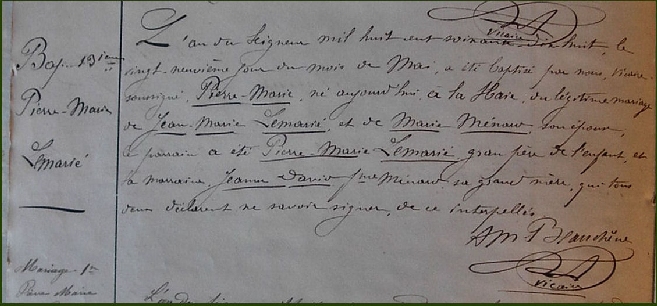 Vicaire
Bap. 13ième
Pierre-Marie
Lemarié
L'an du Seigneur mil huit cent soixante dix huit, le
vingt-neuvième jour du mois de Mai, a été baptisé par nous, Vicaire
soussigné, Pierre-Marie, né aujourd'hui, à la Haie, du légitime mariage
de Jean-Marie Lemarié, et de Marie Ménard, son épouse,
le parrain a été Pierre Marie Lemarié grand père de l'enfant, et
la marraine Jeanne David fme Ménard sa grand mère, qui tous
deux déclarent ne savoir signer, de ce interpellés.
AM Blanchêne
Vicaire
Mariage 1er
Pierre Marie
L'an